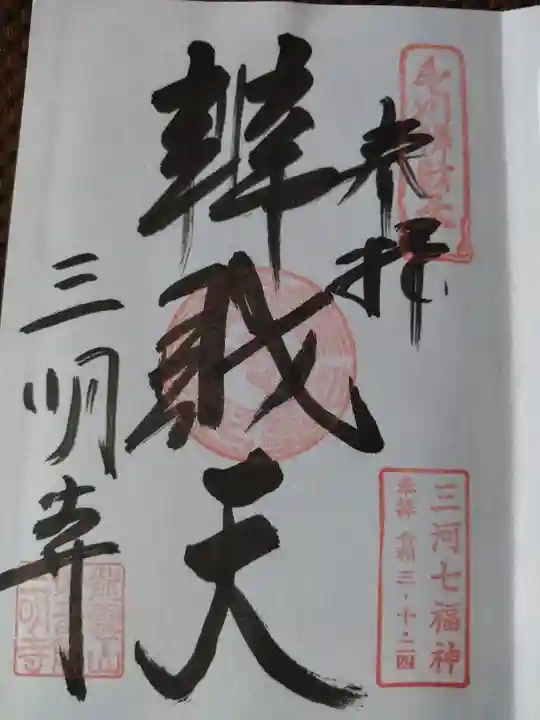 奉拝
辨財天
三明寺
三河七福神
奉拝 令和三・十・二四